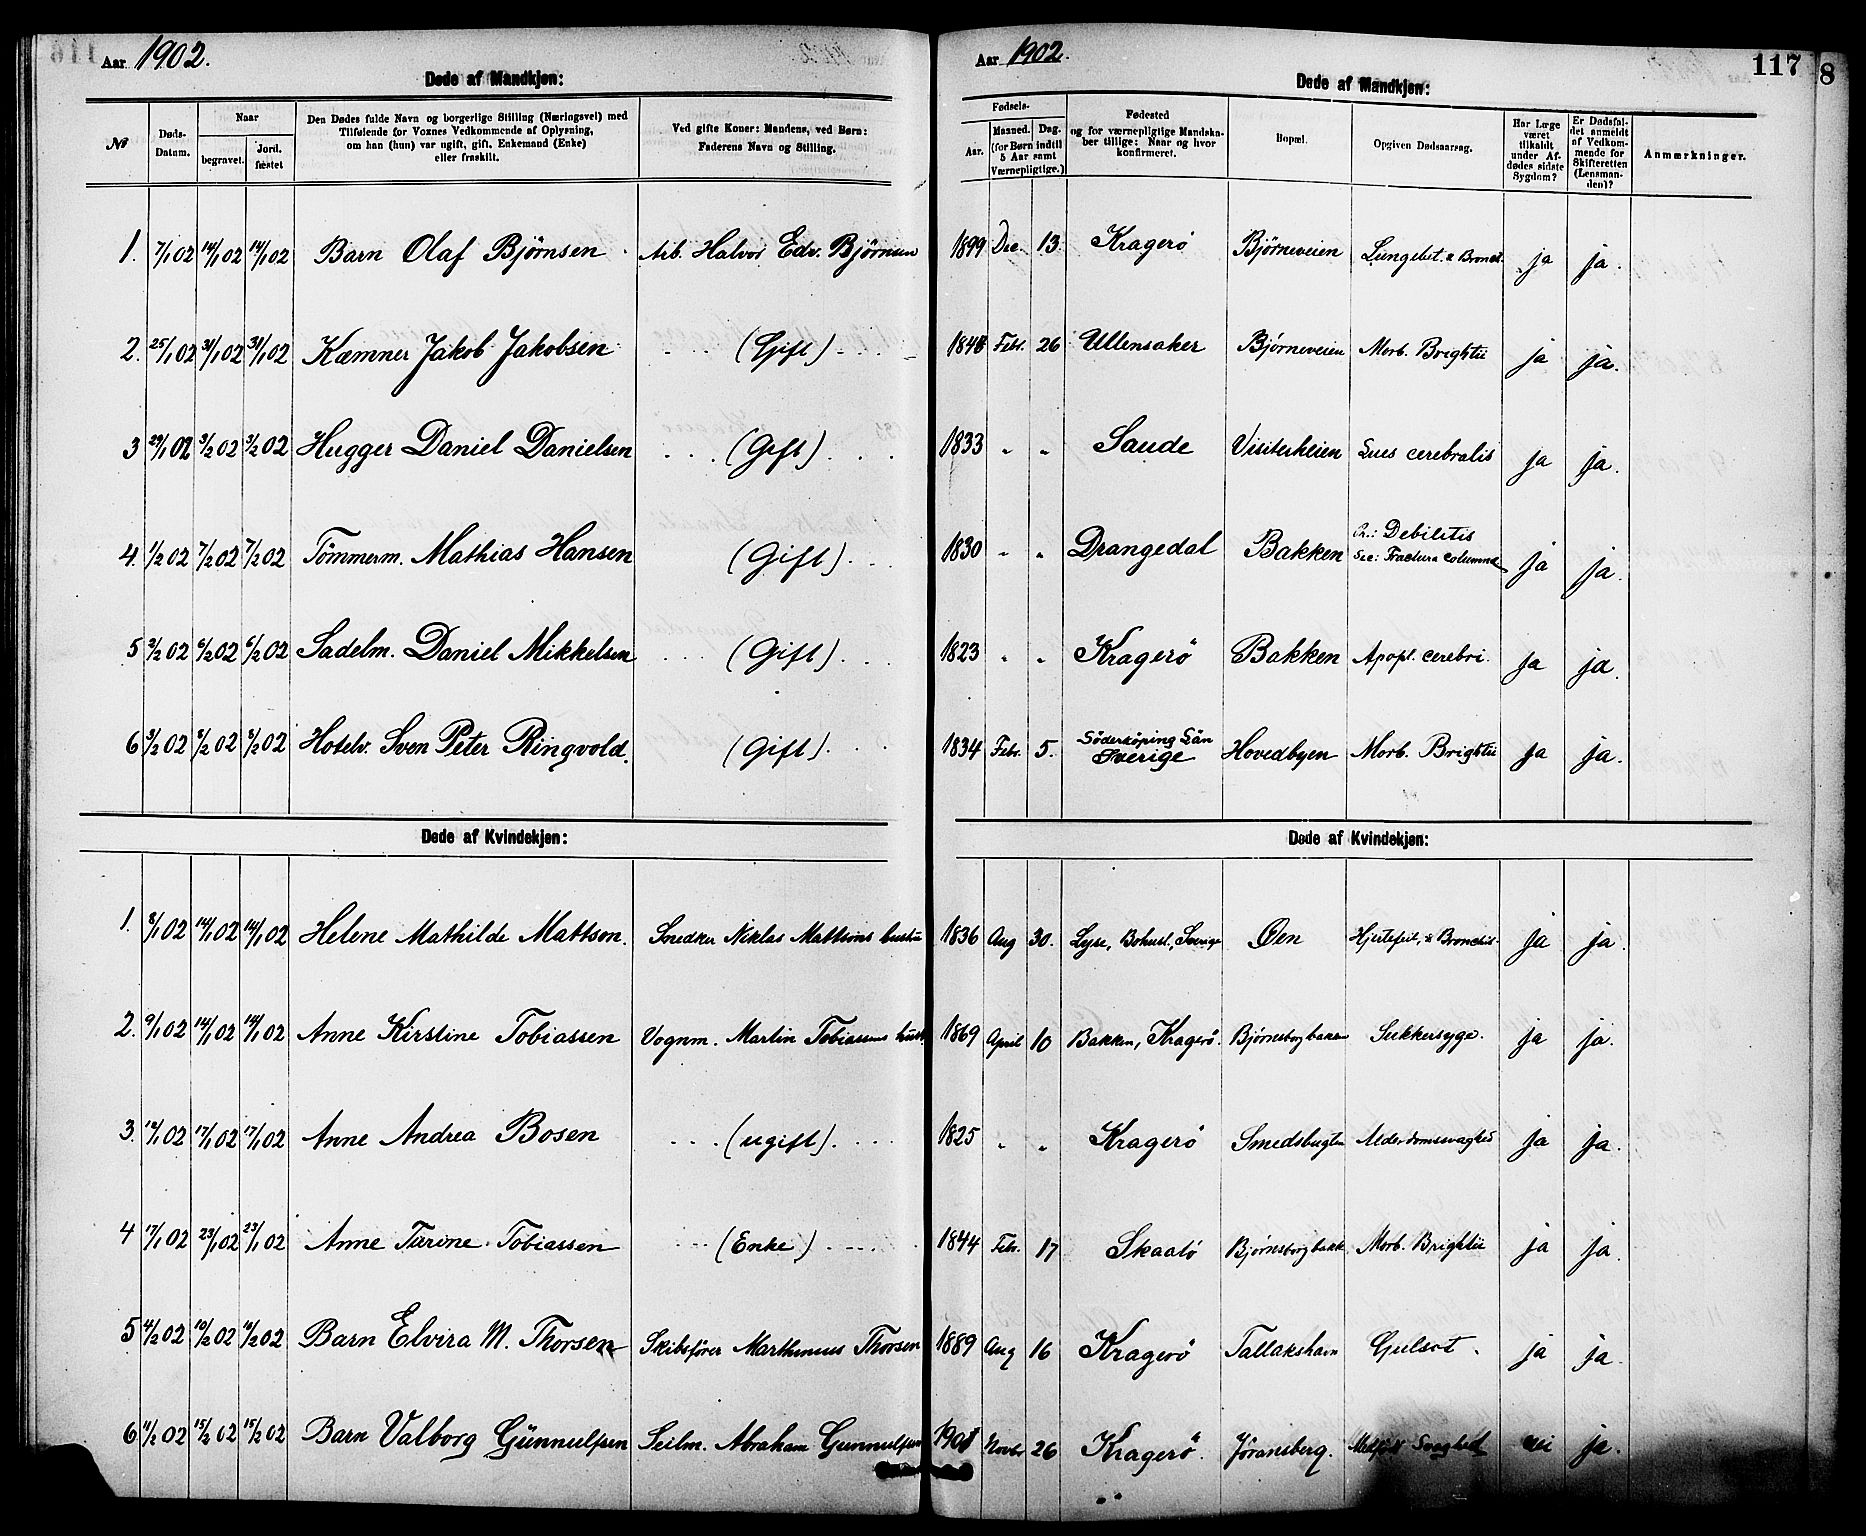 Aar 1902.
Døde af Mandkjøn:
№
Døds-Datum.
Naar
begravet.
Jord.fæstet
Den Dødes fulde Navn og borgerlige Stilling (Næringsvei) med
Tilføiende for Voxnes Vedkommende af Oplysning,
om han (hun) var ugift, gift, Enkemand (Enke)
eller fraskilt.
Ved gifte Koner: Mandens, ved Børn:
Faderens Navn og Stilling.
1. 7/1 02 14/1 02 14/1 02 Barn Olaf Bjørnsen. Arb. Halvor Edv. Bjørnsen
2. 25/1 02 31/1 02 31/1 02 Kæmner Jakob Jakobsen (Gift)
3 29/1 02 3/2 02 3/2 02 Hugger Daniel Danielsen (Gift)
4. 1/2 02 7/2 02 7/2 02 Tömmerm. Mathias Hansen (Gift)
5 3/2 02 6/2 02 6/2 02 Sadelm. Daniel Mikkelsen (Gift)
6 3/2 02 8/2 02 8/2 02 Hotelv. Sven Peter Ringvold. (Gift)
Døde af Kvindekjøn:
1. 8/1 02 14/1 02 14/1 02 Helene Mathilde Mattson. Snedker Niklas Mattsons hustru
2. 9/1 02 14/1 02 14/1 02 Anne Kirstine Tobiassen Vognm. Martin Tobiassens hust
3. 14/1 02 17/1 02 17/1 02 Anne Andrea Bosen (ugift)
4 17/1 02 23/1 02 23/1 02 Anne Turine Tobiassen (Enke)
5 4/2 02 10/2 02 14/2 02 Barn Elvira M. Thorsen Skibsfører Marthinius Thorsen
6 11/2 02 15/2 02 15/2 02 Barn Valborg Gunnulfsen Seilm. Abraham Gunnulfsen
Aar 1902.
117
8
Døde af Mandkjøn:
Fødsels-
Aar.
Maaned. Dag.
(for Børn indtil
5 Aar samt
Værnepligtige.)
Fødested
og for værnepligtige Mandska-
ber tillige: Naar og hvor
konfirmeret.
Bopæl.
Opgiven Dødsaarsag.
Har Læge
været
tilkaldt
under Af-
dødes sidste
Sygdom?
Er Dødsfal-
det anmeldt
af Vedkom-
mende for
Skifteretten
(Lensman-
den)?
Anmærkninger.
1899 Dec. 13. Kragerö Bjørneveien Lungebet. & Bronch. ja ja.
1848 Febr. 26 Ullensaker Bjørneveien Morb. Brightii ja ja.
1833 " " Saude Visiterheien Lues cerebralis ja ja.
1830 " " Drangedal Bakken Pr.: Debilitis
Sec: Fractura columnæ ja ja.
1823 " " Kragerö Bakken Apopl. cerebri. ja ja.
1834 Febr. 5. Söderköping Län
Sverige Hovedbyen Morb. Brightii ja ja.
Døde af Kvindekjøn:
1836 Aug 30. Lyse, Bohusl, Sverige Øen Hjertefeil, & Bronchit. ja ja.
1869 April 10 Bakken, Kragerö. Bjørnsborgbakken Sukkersyge. ja ja.
1825 " " Kragerö Smedsbugten Alderdomssvaghed ja ja.
1844 Febr. 17 Skaatö Bjørnsborgbakk Morb. Brightii ja ja.
1889 Aug 16 Kragerö Tallakshavn Gulsot. ja ja.
1901 Novbr 26 Kragerö. Jøransberg. Medfödt Svaghed nei ja.